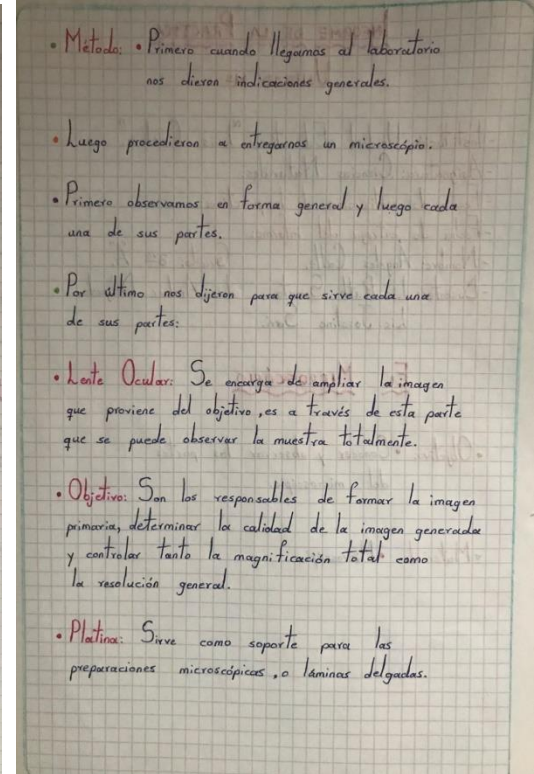 • Método: • Primero cuando llegamos al laboratorio
nos dieron indicaciones generales.
• Luego procedieron a entregarnos un microscópio.
• Primero observamos en forma general y luego cada
una de sus partes.
• Por último nos dijeron para que sirve cada una
de sus partes:
• Lente Ocular: Se encarga de ampliar la imagen
que proviene del objetivo, es a través de esta parte
que se puede observar la muestra totalmente.
• Objetivo: Son los responsables de formar la imagen
primaria, determinar la calidad de la imagen generada
y controlar tanto la magnificación total como
la resolución general.
• Platina: Sirve como soporte para las
preparaciones microscópicas, o láminas delgadas.